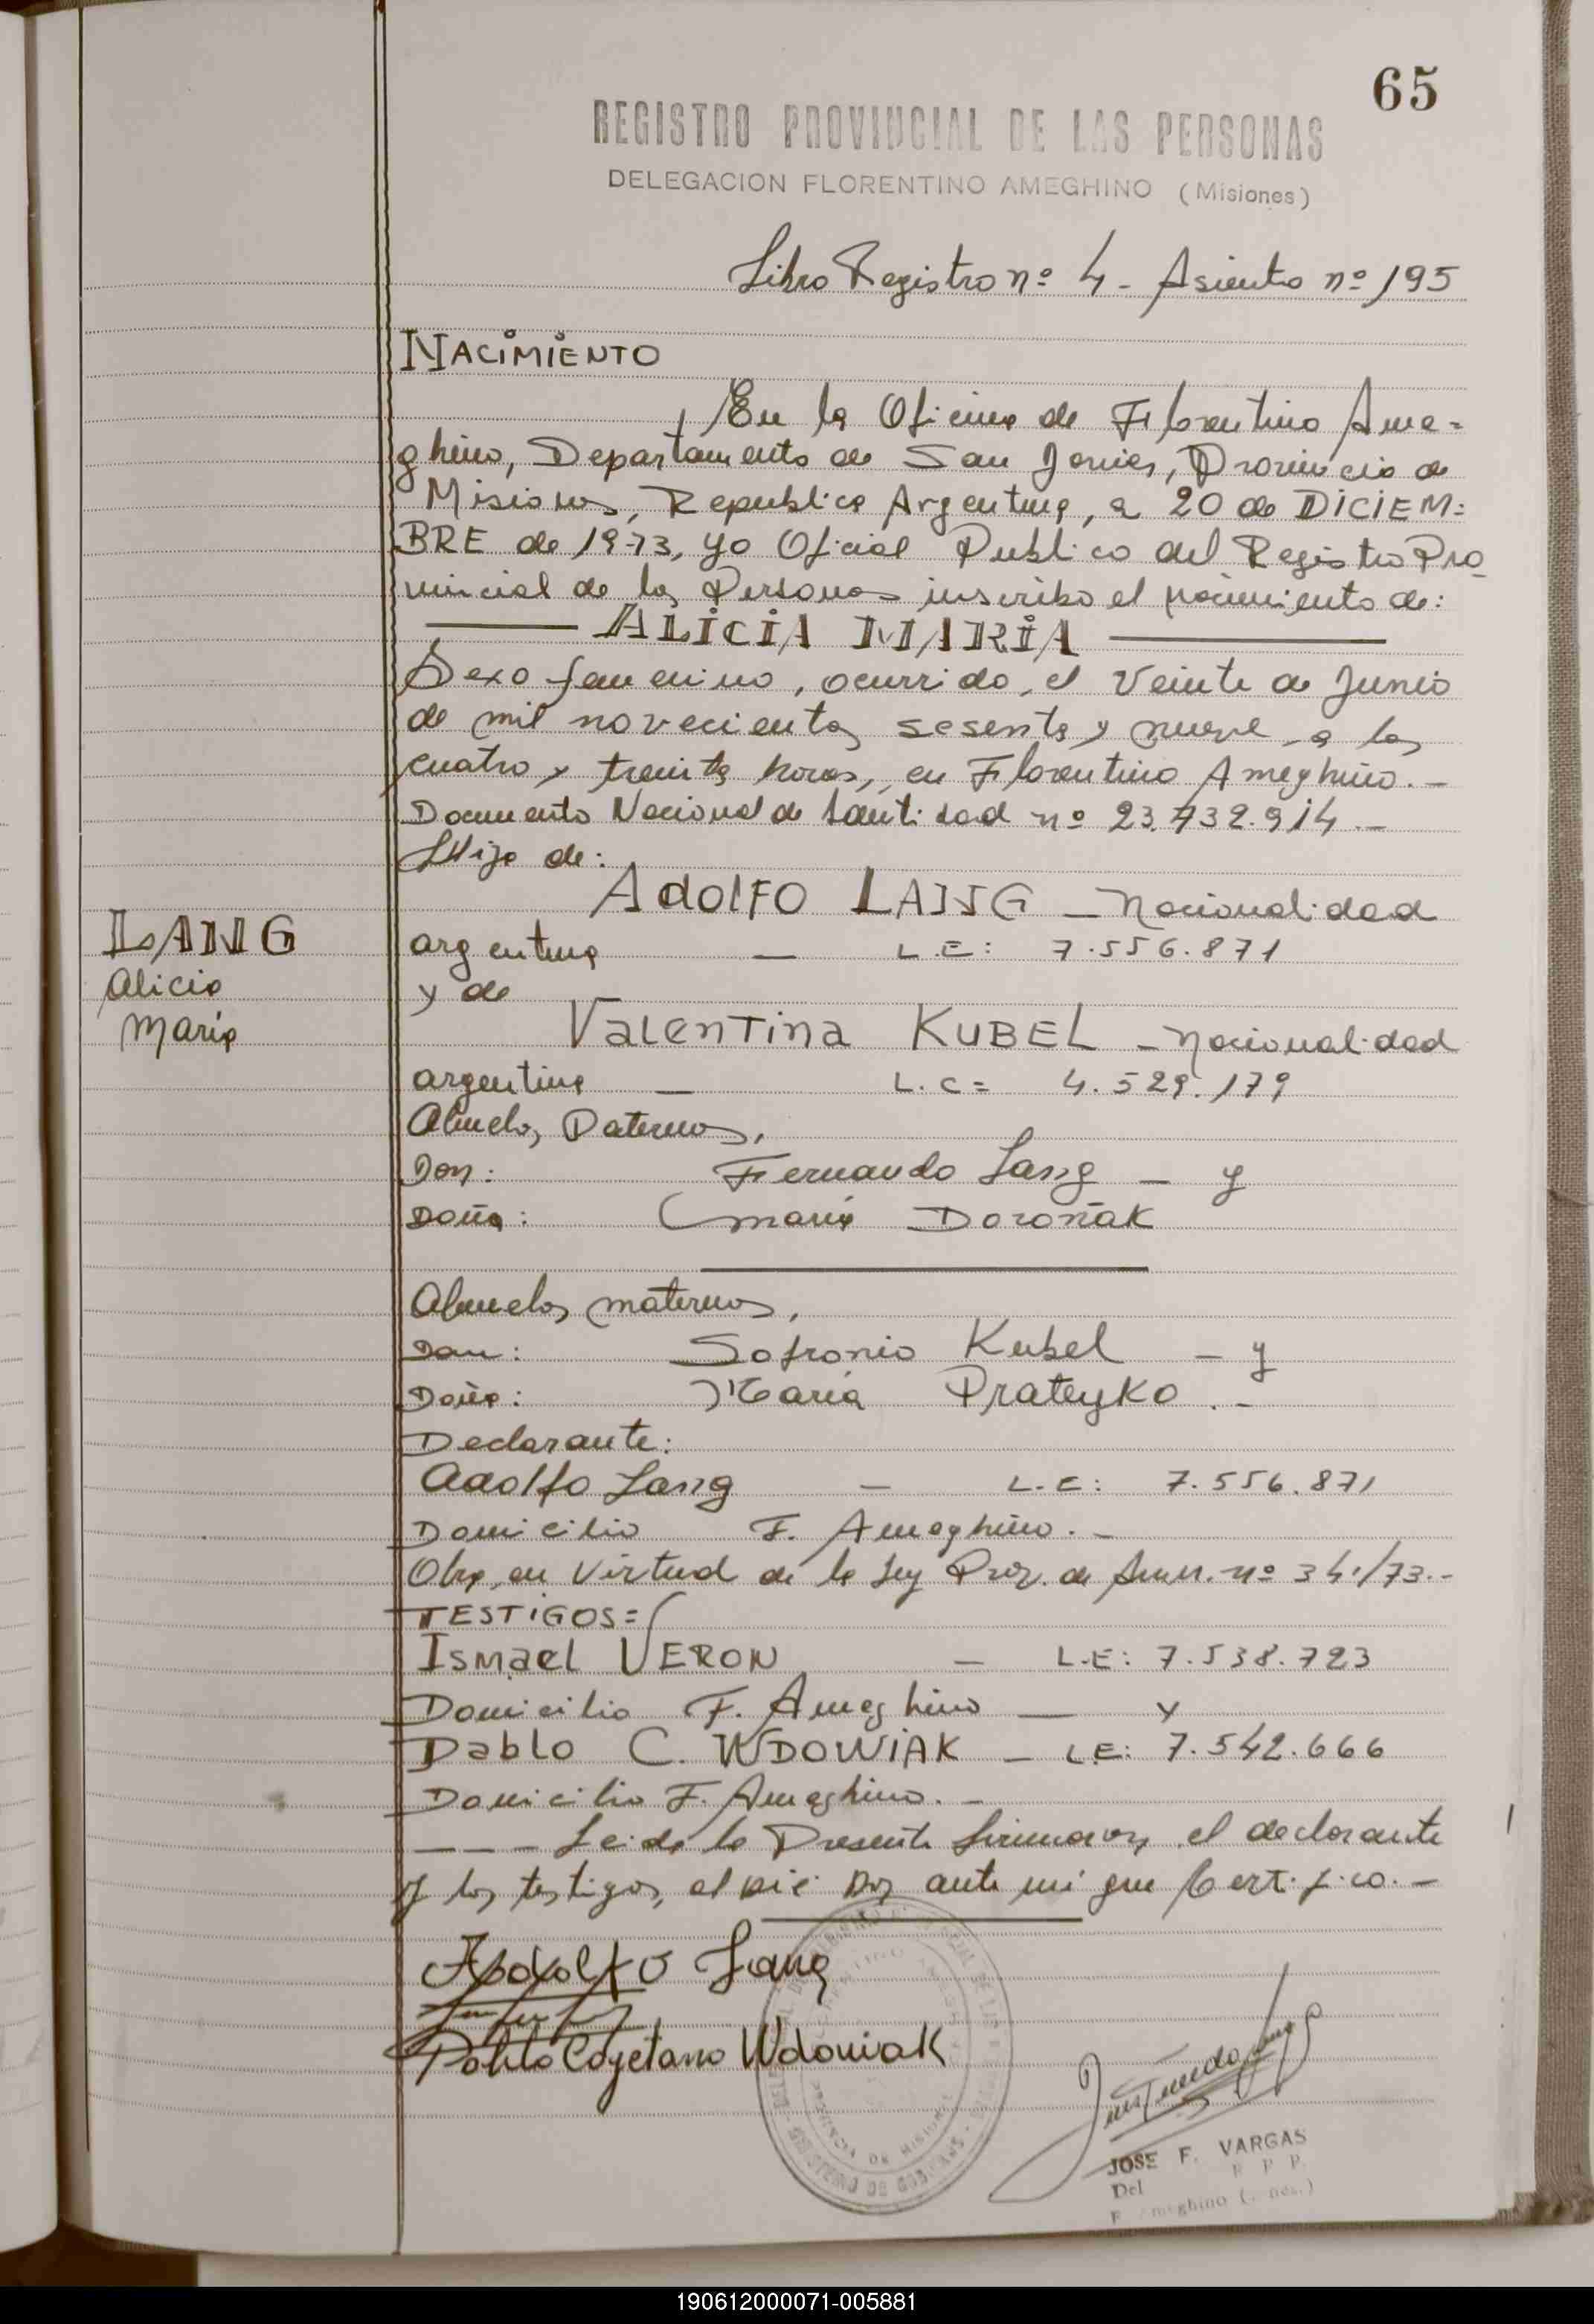 65
REGISTRO PROVINCIAL DE LAS PERSONAS
DELEGACION FLORENTINO AMEGHINO (Misiones)
Libro Registro nº 4 - Asiento nº 195
NACIMIENTO
En la Oficina de Florentino Ame=
ghino, Departamento de San Javier, Provincia de
Misiones, Republica Argentina, a 20 de DICIEM=
BRE de 1973, yo Oficial Publico del Registro Pro
vincial de las Personas inscribo el nacimiento de:
ALICIA MARIA
Sexo femenino, ocurrido, el veinte de Junio
de mil novecientos sesenta y nueve, a las
cuatro y treinta horas, en Florentino Ameghino.-
Documento Nacional de Identidad nº 23.732.914.-
Hija de:
ADOLFO LANG - Nacionalidad
LANG
argentina — L.E: 7.556.871
Alicia
y de
Maria
Valentina KUBEL - Nacionalidad
argentina — L.C= 4.529.179
Abuelos Paternos,
Don: Fernando Lang - y
Doña: Maria Doroñak
Abuelos maternos,
Don: Sofronio Kubel - y
Doña: Maria Prateyko.-
Declarante:
Adolfo Lang - L.E: 7.556.871
Domicilio F. Ameghino.-
Obs, en virtud de la ley Prov. de nº 341/73.-
TESTIGOS=
Ismael VERON - L.E: 7.538.723
Domicilio F. Ameghino — y
Pablo C. WDOWIAK - L.E: 7.542.666
Domicilio F. Ameghino.-
--- Leida la Presente firmaron el declarante
y los testigos, al pié por ante mi que Certifico.-
Adolfo Lang
Pablo Cayetano Wdowiak
JOSE F. VARGAS
Del R P P
F meghino
190612000071-005881